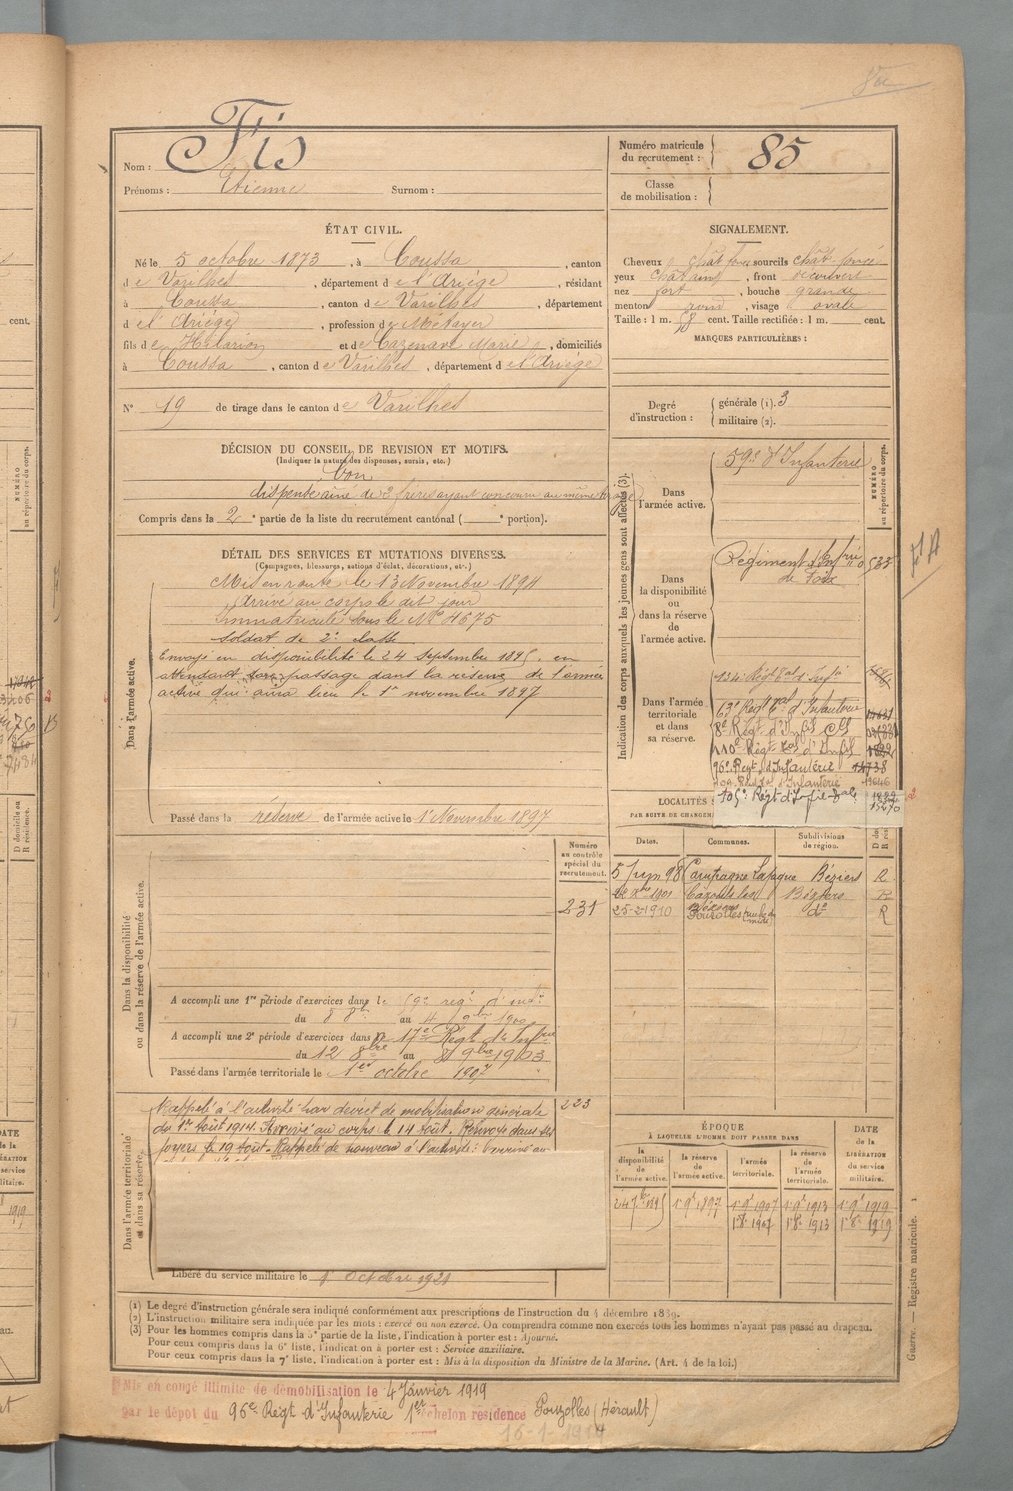 Nom : Fis
Prénoms : Etienne Surnom :
Numéro matricule du recrutement : 85
Classe de mobilisation :
ÉTAT CIVIL.
Né le 5 octobre 1873, à Coussa, canton
de Varilhes, département de l'Ariège, résidant
à Coussa, canton de Varilhes, département
de l'Ariège, profession de Métayer
fils de Hilarion et de Cazenave Marie, domiciliés
à Coussa, canton de Varilhes, département de l'Ariège
N° 19 de tirage dans le canton de Varilhes
SIGNALEMENT.
Cheveux chât foncé sourcils chât. foncé
yeux châtains, front découvert
nez fort, bouche grande
menton rond, visage ovale
Taille : 1 m. 58 cent. Taille rectifiée : 1 m. cent.
MARQUES PARTICULIÈRES :
Degré d'instruction : générale (1). 3
militaire (2).
DÉCISION DU CONSEIL DE REVISION ET MOTIFS.
(Indiquer la nature des dispenses, sursis, etc.)
Bon
dispensé aîné de 2 frères ayant concouru au même tirage
Compris dans la 2e partie de la liste du recrutement cantonal ( e portion).
DÉTAIL DES SERVICES ET MUTATIONS DIVERSES.
(Campagnes, blessures, actions d'éclat, décorations, etc.)
Dans l'armée active.
Mis en route le 13 Novembre 1894
Arrivé au corps le dit jour
Immatriculé sous le N° 4675
soldat de 2e classe
Envoyé en disponibilité le 24 septembre 1895, en
attendant son passage dans la réserve de l'armée
active qui aura lieu le 1er novembre 1897
Passé dans la réserve de l'armée active le 1 Novembre 1897
Indication des corps auxquels les jeunes gens sont affectés (3).
NUMÉRO au répertoire du corps.
Dans l'armée active.
59e d'Infanterie
Dans la disponibilité ou dans la réserve de l'armée active.
Régiment d'Infrie de Foix
Dans l'armée territoriale et dans sa réserve.
134e Régt tal d'Infie
63e Regt tal d'Infanterie
96e Regt d'Infanterie
105e Régt d'Infie tale
LOCALITÉS
PAR SUITE DE CHANGEM
Dates. Communes. Subdivisions de région. D R
5 Juin 98 Béziers R
1901 Cazouls les Béziers R
25-2-1910 Pouzolles do R
Dans la disponibilité ou dans la réserve de l'armée active.
Numéro au contrôle spécial du recrutement.
231
A accompli une 1re période d'exercices dans le 59e régt d'infie
du 8 8bre au 4 9bre 1900
A accompli une 2e période d'exercices dans le 17e Régt d'Infrie
du 12 8bre au 8 9bre 1903
Passé dans l'armée territoriale le 1er octobre 1907
Dans l'armée territoriale et dans sa réserve.
223
Rappelé à l'activité par décret de mobilisation générale
du 1er Août 1914. Arrivé au corps le 14 Août. Renvoyé dans ses
foyers le 19 Août. Rappelé de nouveau à l'activité. Arrivé au
Libéré du service militaire le 1er Octobre 1921
ÉPOQUE
À LAQUELLE L'HOMME DOIT PASSER DANS
DATE de la LIBÉRATION du service militaire.
la disponibilité de l'armée active. la réserve de l'armée active. l'armée territoriale. la réserve de l'armée territoriale.
24 7bre 1895 1er 9bre 1897 1er 9bre 1907 1er 9bre 1913 1er 9bre 1919
1er 8bre 1907 1er 8bre 1913 1er 8bre 1919
(1) Le degré d'instruction générale sera indiqué conformément aux prescriptions de l'instruction du 4 décembre 1889.
(2) L'instruction militaire sera indiquée par les mots : exercé ou non exercé. On comprendra comme non exercés tous les hommes n'ayant pas passé au drapeau.
(3) Pour les hommes compris dans la 5e partie de la liste, l'indication à porter est : Ajourné.
Pour ceux compris dans la 6e liste, l'indication à porter est : Service auxiliaire.
Pour ceux compris dans la 7e liste, l'indication à porter est : Mis à la disposition du Ministre de la Marine. (Art. 4 de la loi.)
Guerre. — Registre matricule. 1
Mis en congé illimité de démobilisation le 4 Janvier 1919
par le dépôt du 96e Régt d'Infanterie 1er échelon résidence Pouzolles (Hérault)